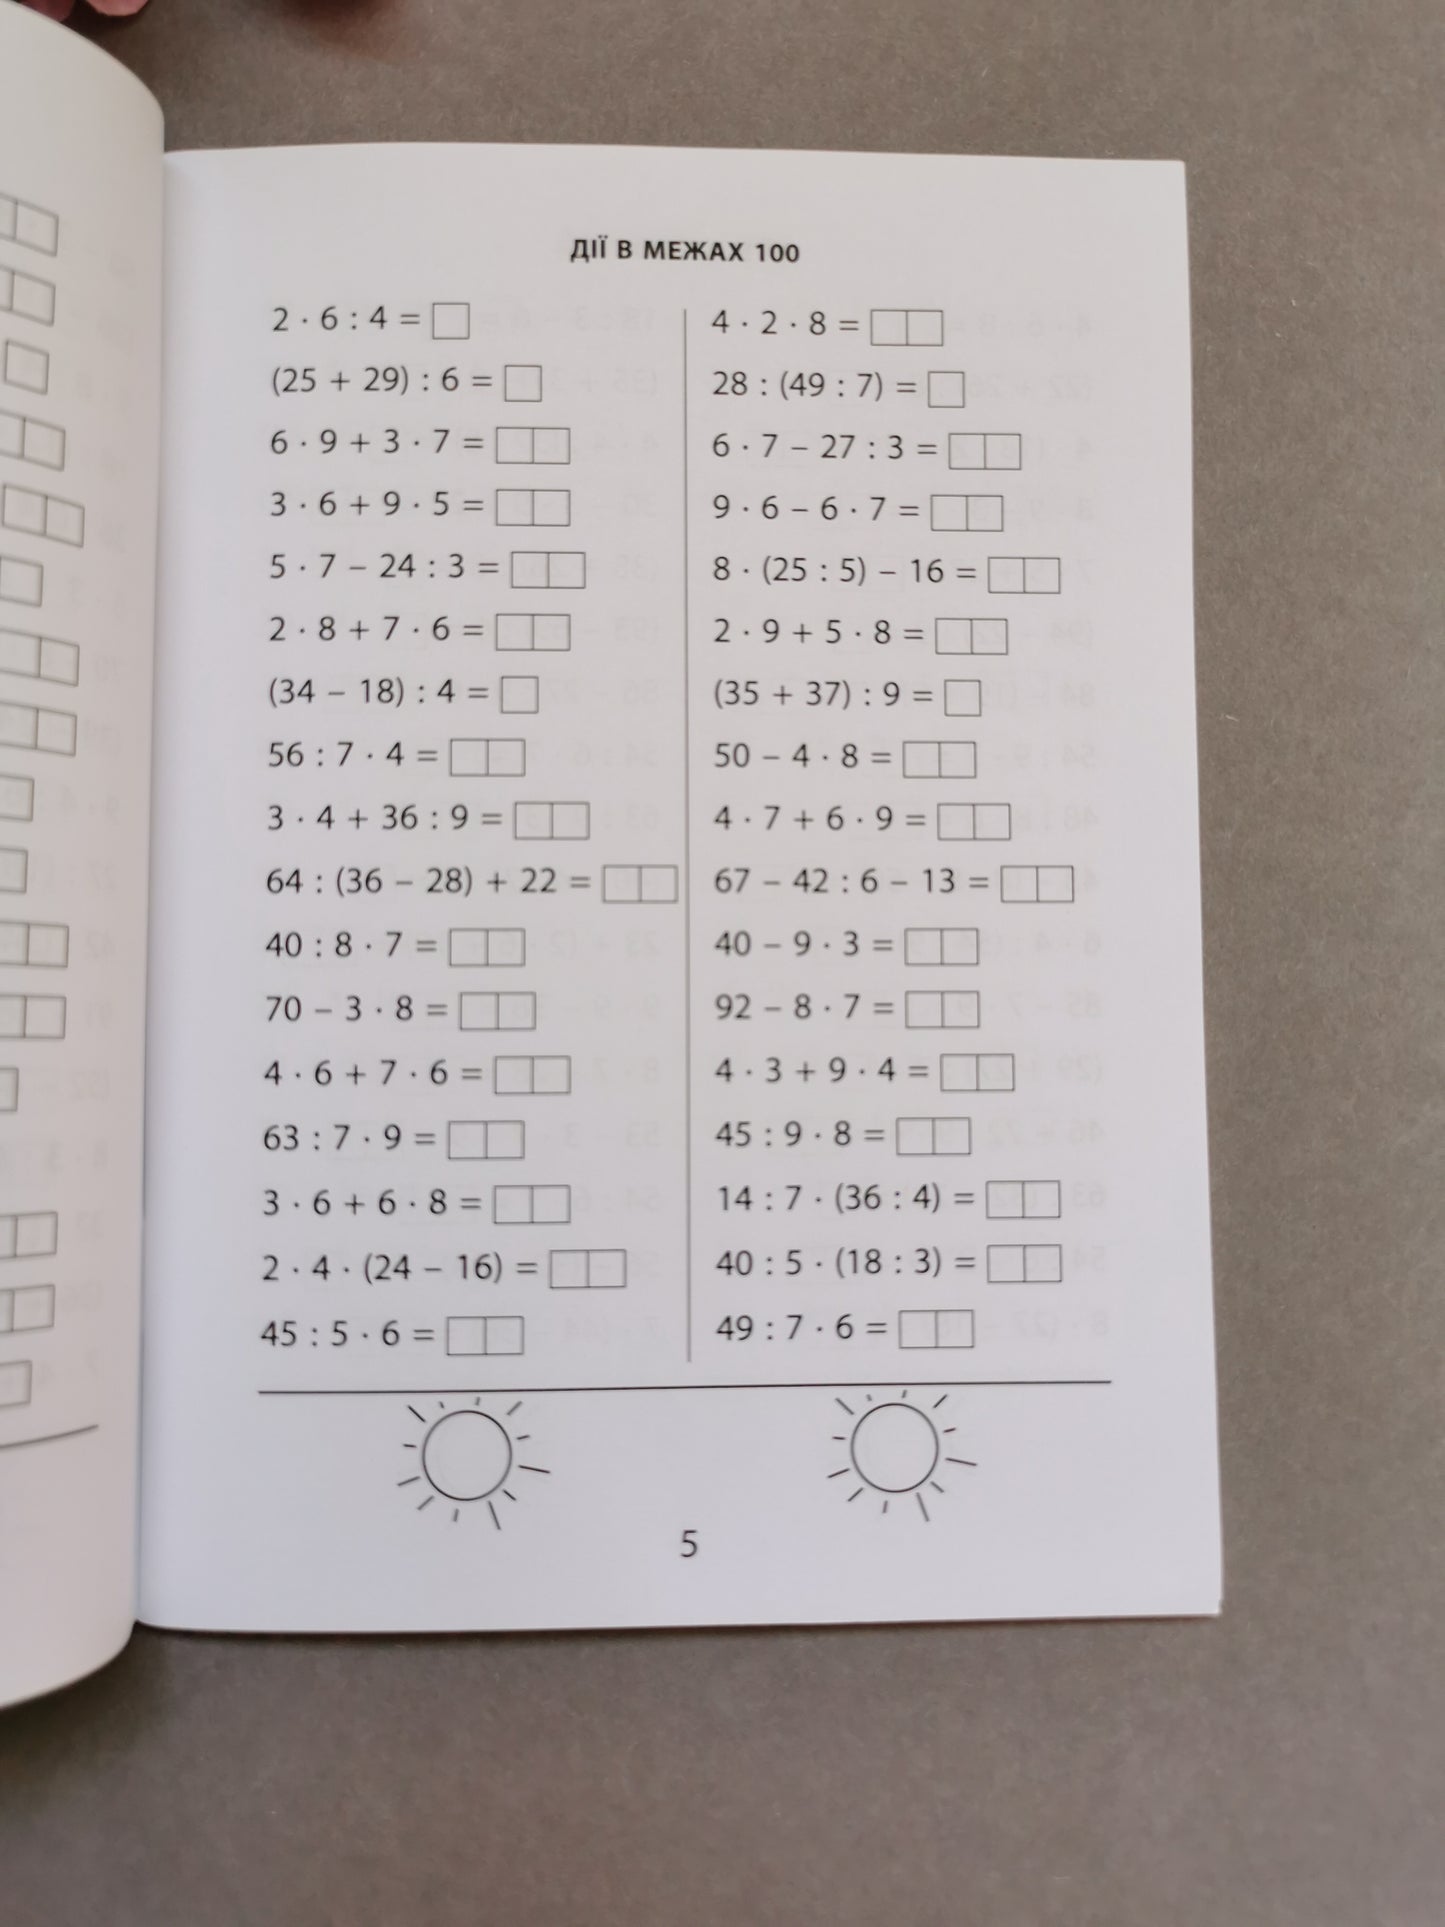 ДІЇ В МЕЖАХ 100
2 · 6 : 4 =
(25 + 29) : 6 =
6 · 9 + 3 · 7 =
3 · 6 + 9 · 5 =
5 · 7 – 24 : 3 =
2 · 8 + 7 · 6 =
(34 – 18) : 4 =
56 : 7 · 4 =
3 · 4 + 36 : 9 =
64 : (36 – 28) + 22 =
40 : 8 · 7 =
70 – 3 · 8 =
4 · 6 + 7 · 6 =
63 : 7 · 9 =
3 · 6 + 6 · 8 =
2 · 4 · (24 – 16) =
45 : 5 · 6 =
4 · 2 · 8 =
28 : (49 : 7) =
6 · 7 – 27 : 3 =
9 · 6 – 6 · 7 =
8 · (25 : 5) – 16 =
2 · 9 + 5 · 8 =
(35 + 37) : 9 =
50 – 4 · 8 =
4 · 7 + 6 · 9 =
67 – 42 : 6 – 13 =
40 – 9 · 3 =
92 – 8 · 7 =
4 · 3 + 9 · 4 =
45 : 9 · 8 =
14 : 7 · (36 : 4) =
40 : 5 · (18 : 3) =
49 : 7 · 6 =
5